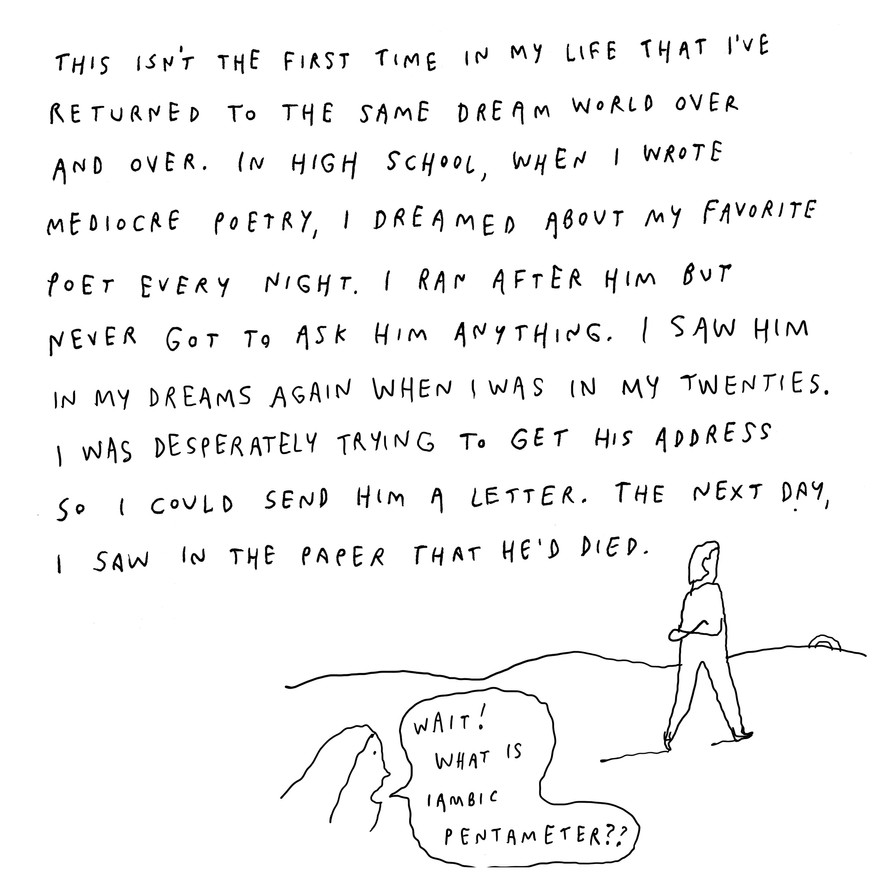 THIS ISN'T THE FIRST TIME IN MY LIFE THAT I'VE
RETURNED TO THE SAME DREAM WORLD OVER
AND OVER. IN HIGH SCHOOL, WHEN I WROTE
MEDIOCRE POETRY, I DREAMED ABOUT MY FAVORITE
POET EVERY NIGHT. I RAN AFTER HIM BUT
NEVER GOT TO ASK HIM ANYTHING. I SAW HIM
IN MY DREAMS AGAIN WHEN I WAS IN MY TWENTIES.
I WAS DESPERATELY TRYING TO GET HIS ADDRESS
SO I COULD SEND HIM A LETTER. THE NEXT DAY,
I SAW IN THE PAPER THAT HE'D DIED.
WAIT!
WHAT IS
IAMBIC
PENTAMETER??